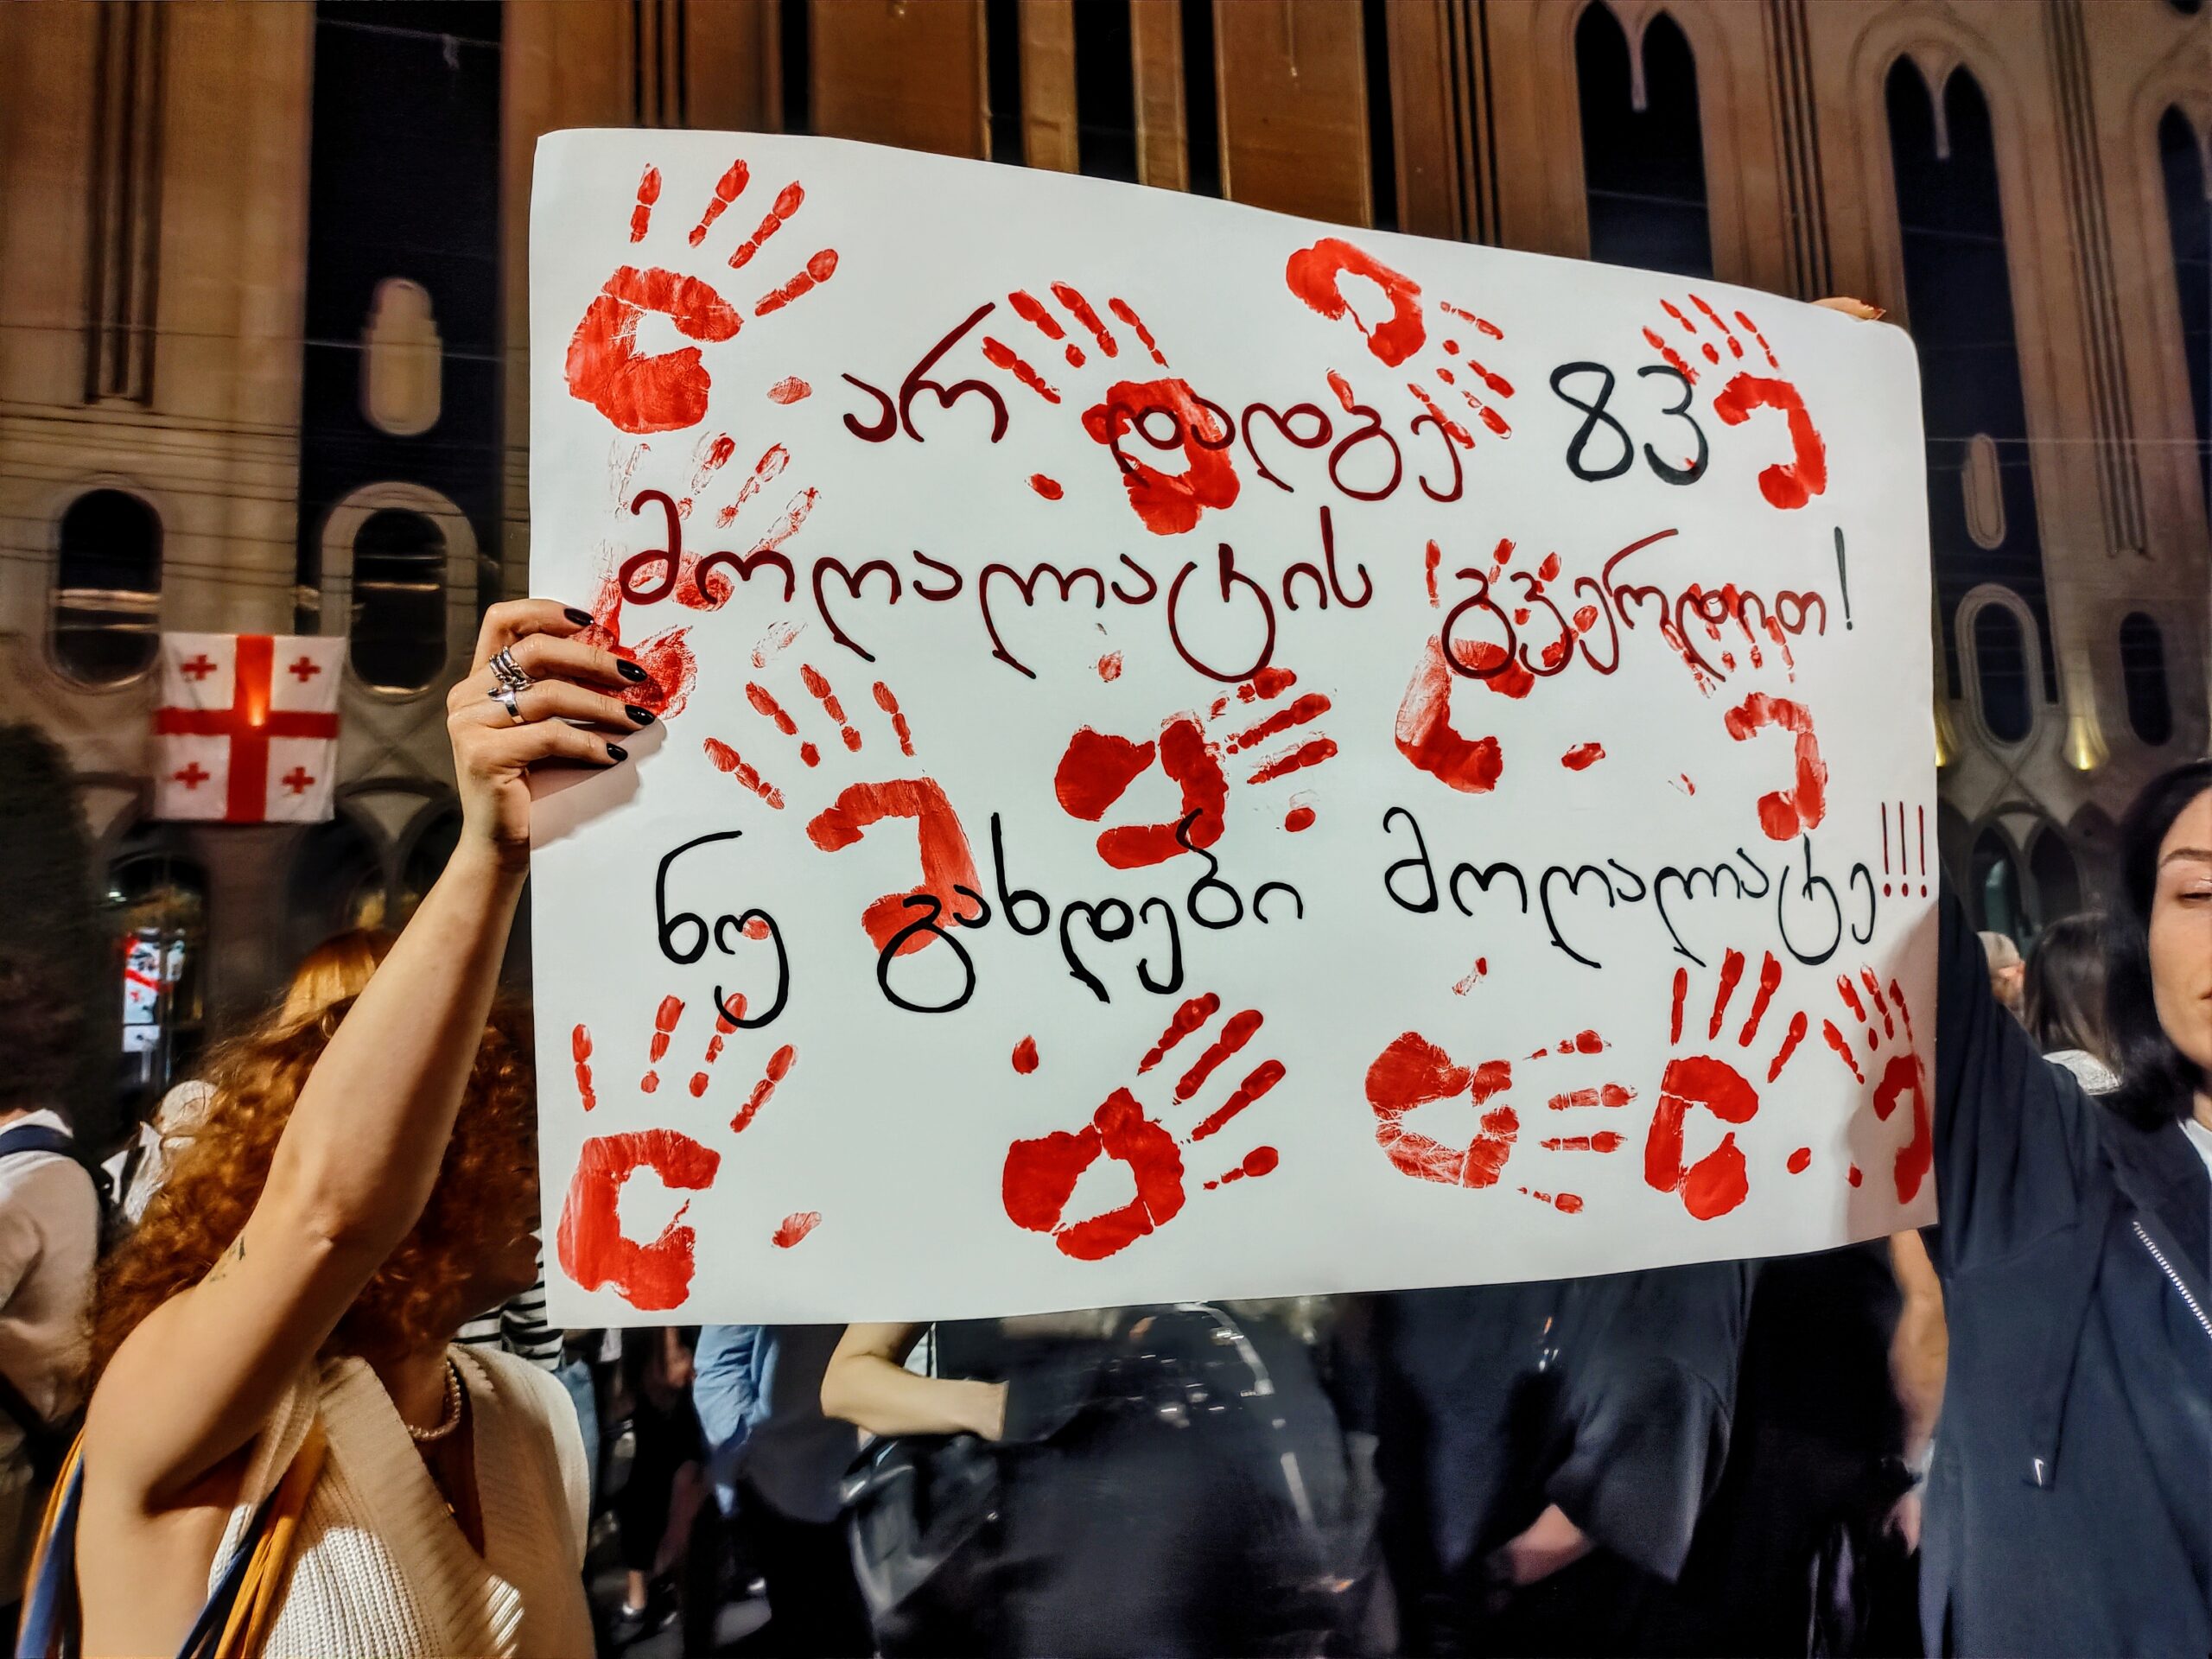 არ დადგე 83
მოღალატის გვერდით!
ნუ გახდები მოღალატე!!!